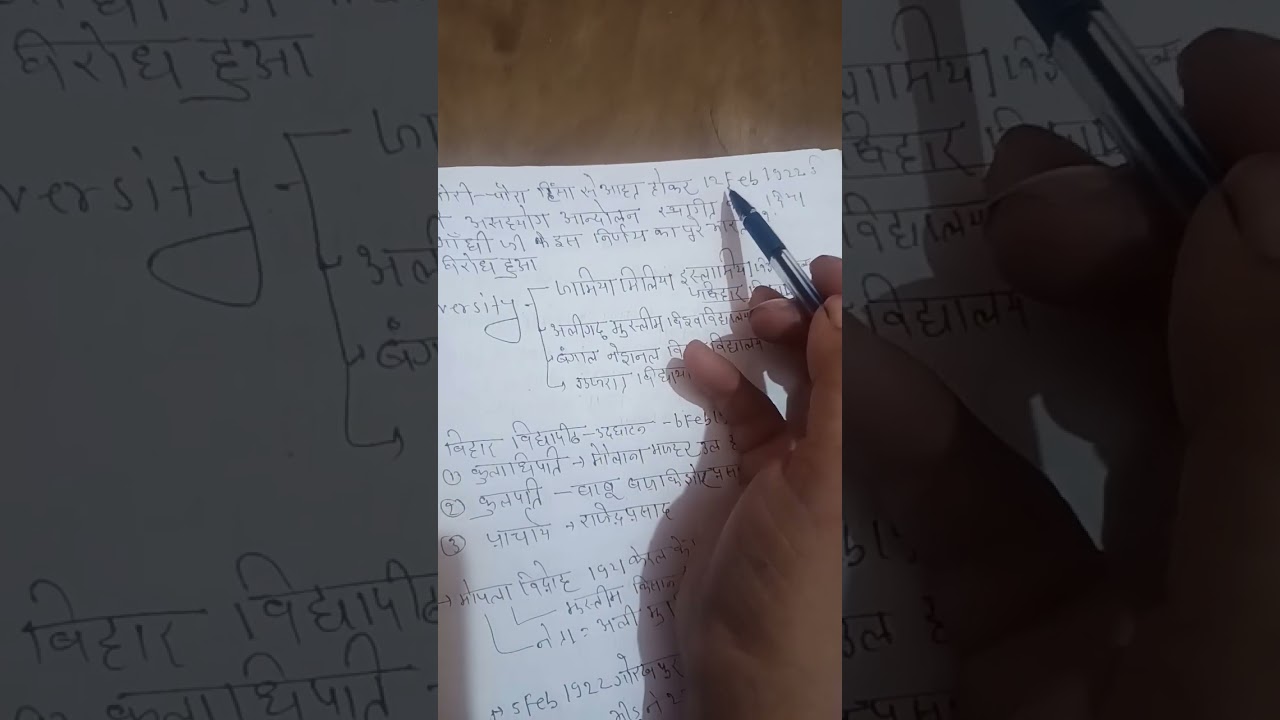 चौरी-चौरा हिंसा से आहत होकर 12 Feb 1922 ई
असहयोग आन्दोलन स्थगित किया
गाँधी जी के इस निर्णय का पुरे
विरोध हुआ
versity
जामिया मिलिया इस्लामिया
बिहार
अलीगढ़ मुस्लीम विश्वविद्यालय
बंगाल नेशनल विश्वविद्यालय
गुजरात विद्यापी
बिहार विद्यापीठ - उदघाटन - 6 Feb 19
① कुलाधिपति → मौलाना मजहर उल ह
② कुलपति - बाबू ब्रजकिशोर प्रसा
③ प्राचार्य → राजेन्द्र प्रसाद
→ मोपला विद्रोह 1921 केरल के
मुस्लीम किसान
नेता = अली मु
→ 5 Feb 1922 गोरखपुर
भीड़ ने